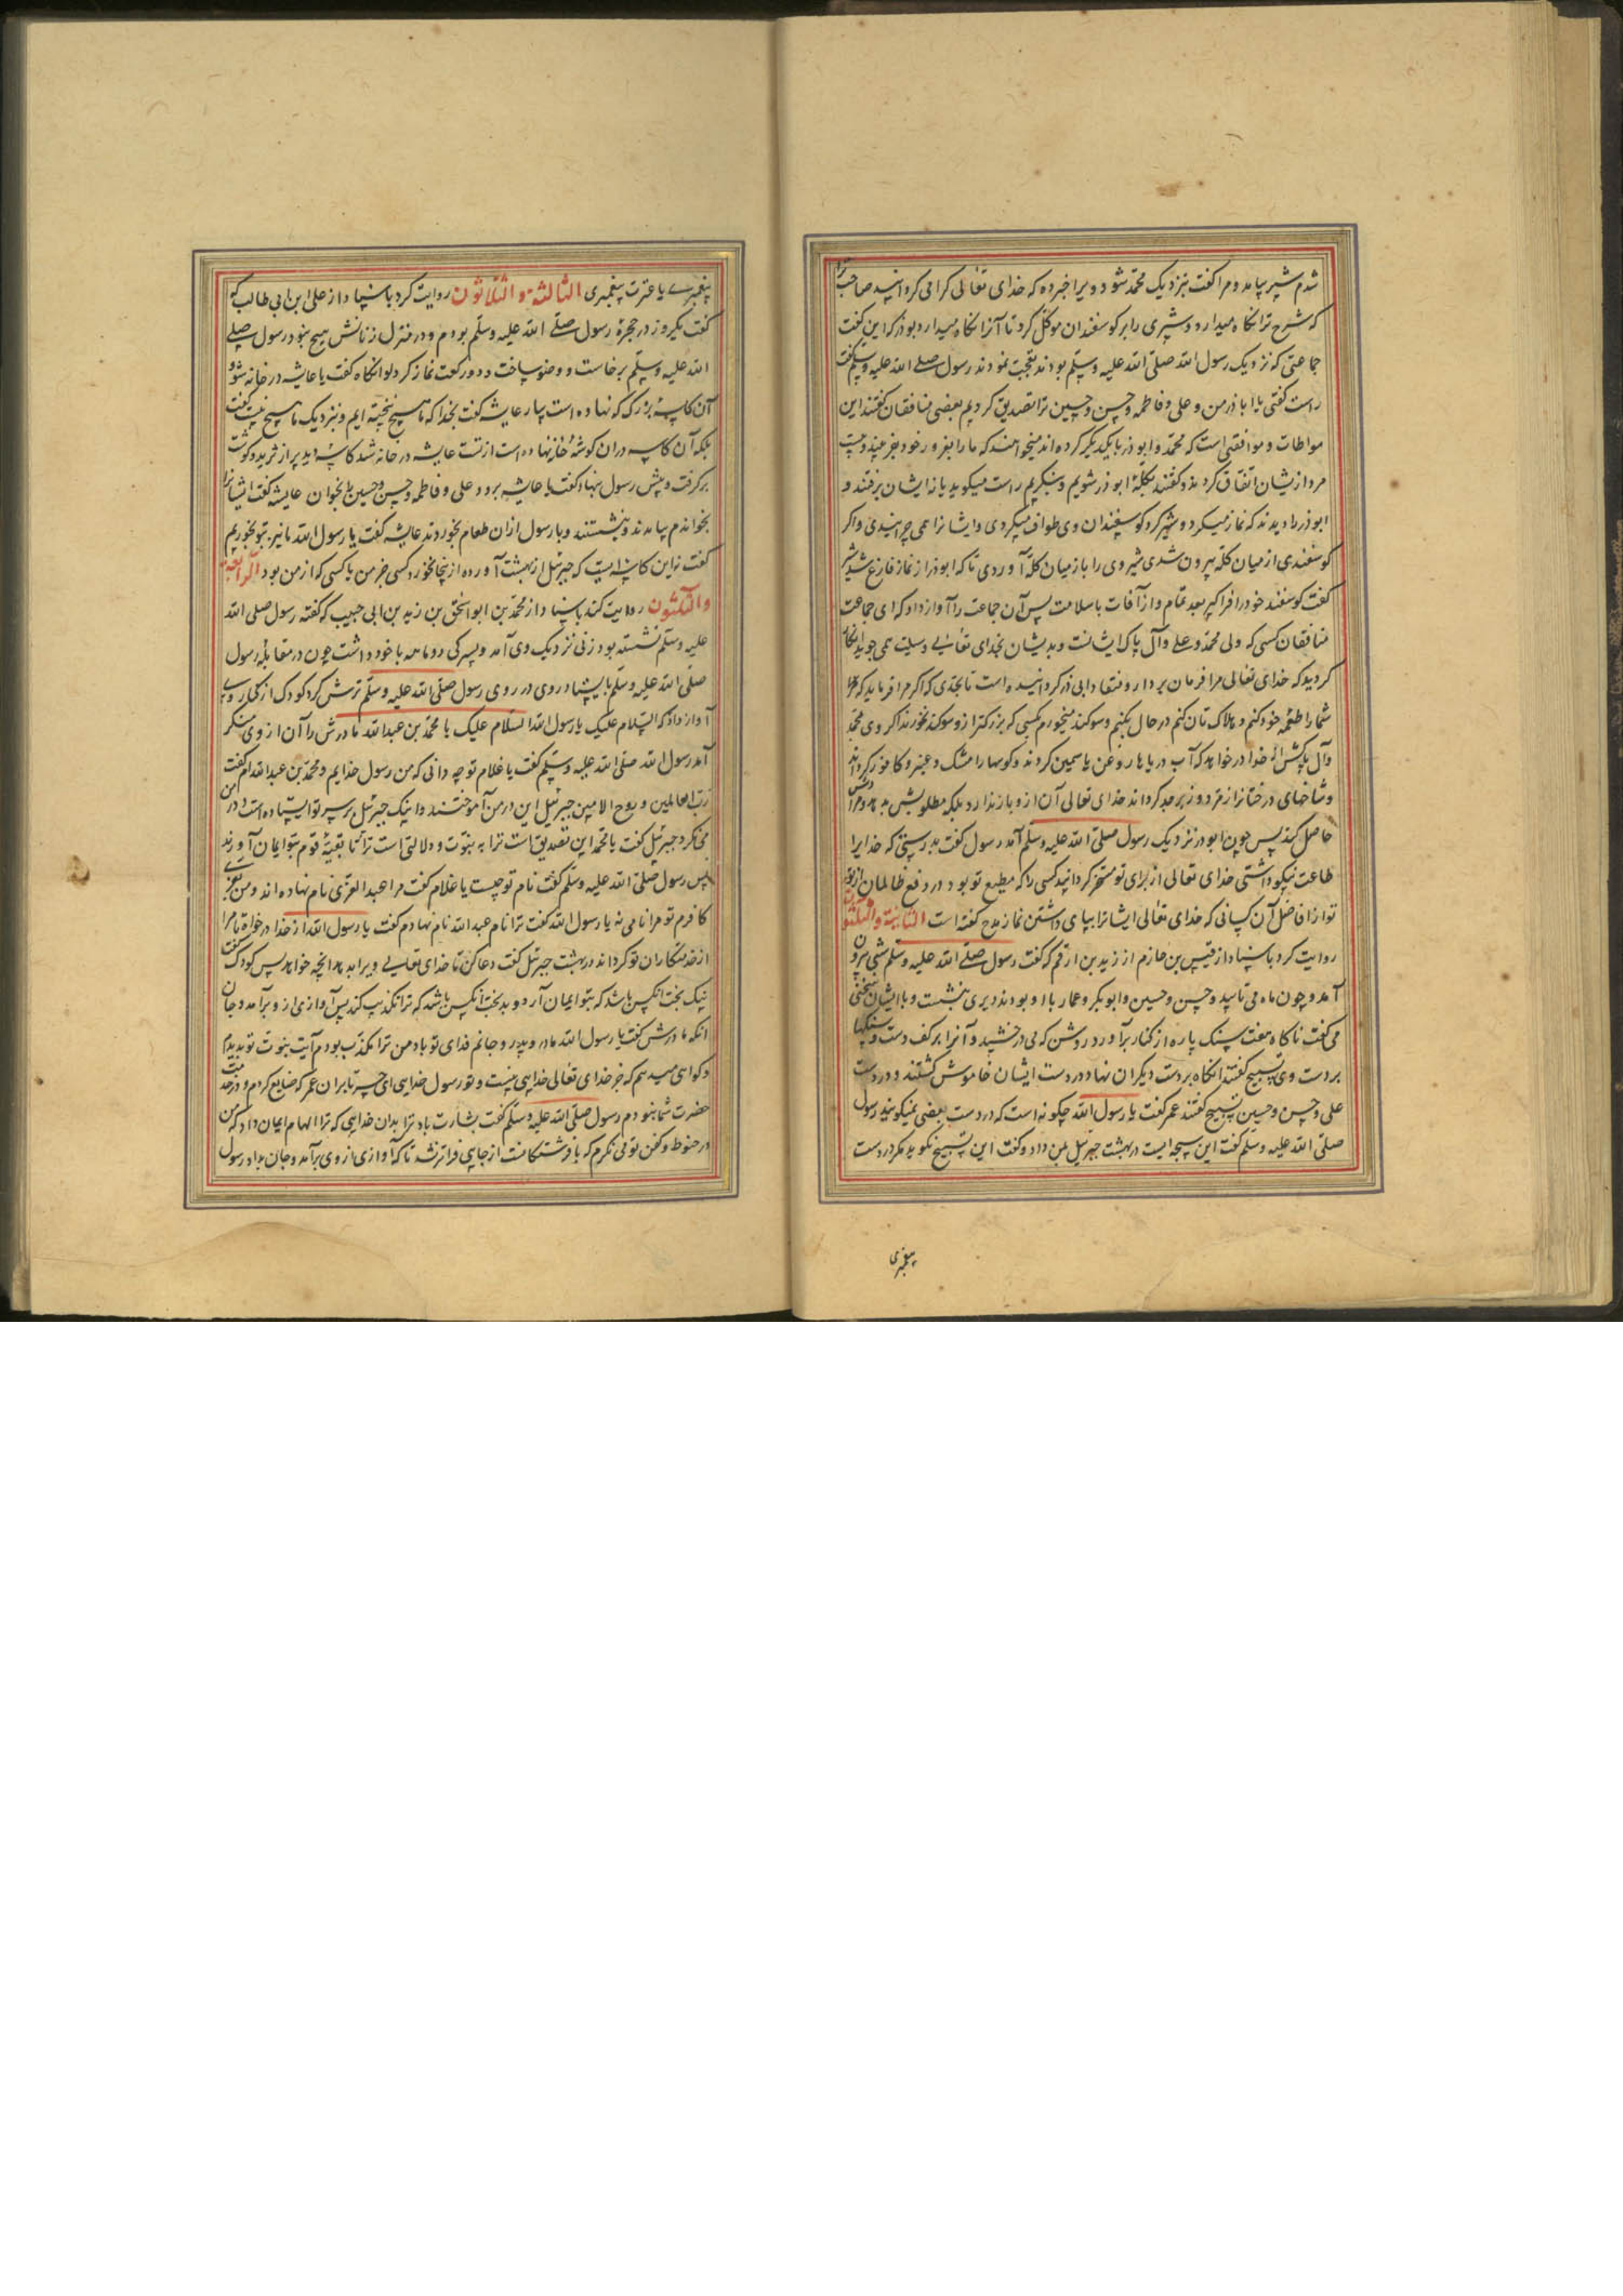 شدم شیر بیامد و مرا گفت بنزدیک محمد شو و ویرا خبر ده که خدای تعالی گرامی گردانید صاحب ترا
که شرح ترا نگاه میدارد و شیری را بر کوسفندان موکل کرد تا آنرا نگاه میدارد بوذر که این گفت
جماعتی که نزدیک رسول الله صلی الله علیه وسلم بودند تعجب نمودند رسول صلی الله علیه وسلم گفت
راست گفتی یا ابا ذر من و علی و فاطمه و حسن و حسین ترا تصدیق کردیم بعضی منافقان گفتند این
مواطات و موافقتی است که محمد و ابو ذر با یکدیگر کرده اند میخواهند که ما را بغرور خود بفریبند و بیست
مرد ازیشان اتفاق کردند و گفتند بگلهٔ ابو ذر شویم و بنگریم راست میگوید یا نه ایشان برفتند و
ابوذر را دیدند که نماز میکرد و شیر گرد کوسفندان وی طواف میکردی و ایشانرا همی چرانیدی و اگر
کوسفندی از میان گله بیرون شدی شیر وی را باز میان گله آوردی تا که ابوذر از نماز فارغ شد شیر
گفت کوسفند خود را فرا گیر بعد تمام و از آفات با سلامت پس آن جماعت را آواز داد که ای جماعت
منافقان کسی که ولی محمد و علی و آل پاک ایشانست و بدیشان بخدای تعالی وسیلت همی جوید انکار
کردید که خدای تعالی مرا فرمان بردار و منقاد ابی ذر کردانیده است تا بحدی که اگر مرا فرماید که مر
شما را طعمه خود کنم و هلاک تان کنم در حال بکنم و سوکند میخورم بکسی که بزرکتر ازو سوکند نخورند اگر وی بمحمد
و آل پاکش از خدا درخواهد که آب دریاها روغن یاسمین کردند و کوهها را مشک و عنبر و کافور کرداند
و شاخهای درختانرا زمرد و زبرجد کرداند خدای تعالی آن ازو باز ندارد بلکه مطلوبش بدهد و مرادش
حاصل کند پس چون ابوذر نزدیک رسول صلی الله علیه وسلم آمد رسول گفت بدرستی که خدایرا
طاعت نیکو داشتی خدای تعالی از برای تو مسخر کردانید کسی را که مطیع تو بود در دفع ظالمان از تو
تو از افاضل آن کسانی که خدای تعالی ایشانرا ببپای داشتن نماز مدح گفته است الثانیة والثلثون
روایت کرد باسناد از قیس بن حازم از زید بن ارقم که گفت رسول صلی الله علیه وسلم شبی بیرون
آمد و چون ماه می تابید و حسن و حسین و ابوبکر و عمار با او بودند دیری بنشست و با ایشان سخن
می گفت ناگاه هفت سنک پاره از کنار برآورد روشن که می درخشید و آنرا بر کف دست سنکها
بر دست وی تسبیح گفتند انگاه بر دست دیگران نهاد و در دست ایشان خاموش گشتند و در دست
علی و حسن و حسین تسبیح گفتند عمر گفت یا رسول الله چگونه است که در دست بعضی نمیگویند رسول
صلی الله علیه وسلم گفت این سبحه ایست در بهشت جبرئیل بمن داد و گفت این تسبیح نگوید مگر در دست
پیغمبری
پیغمبری یا عترت پیغمبری الثالثة والثلاثون روایت کرد باسناد از علی ابن ابی طالب که
گفت یکروز در حجرهٔ رسول صلی الله علیه وسلم بودم و در منزل زنانش هیچ نبود رسول صلی
الله علیه وسلم برخاست و وضو ساخت و دو رکعت نماز کرد انگاه گفت یا عایشه در خانه شو و
آن کاسه بزرگ که نهاده است بیار عایشه گفت بخدا که ما هیچ نپخته ایم و بنزدیک ما هیچ نیست گفت
بلکه آن کاسه در ان کوشهٔ خانه نهاده است از تست عایشه در خانه شد کاسه دید پر از ثرید و گوشت
برگرفت و پیش رسول نهاد گفت یا عایشه برو و علی و فاطمه و حسن و حسین را بخوان عایشه گفت ایشانرا
بخواندم بیامدند و بنشستند و با رسول ازان طعام بخوردند عایشه گفت یا رسول الله ما نیز با تو بخوریم
گفت نه این کاسه ایست که جبرئیل از بهشت آورده ازینجا نخورد کسی جز من یا کسی که از من بود الرابعة
والثلثون روایت کند باسناد از محمد بن ابو اسحق بن زید بن ابی حبیب که گفته رسول صلی الله
علیه وسلم نشسته بود زنی نزدیک وی آمد و پسرکی دو ماهه با خود داشت چون در مقابله رسول
صلی الله علیه وسلم بایستاد روی در روی رسول صلی الله علیه وسلم ترش کرد کودک از کنار وی
آواز داد که السلام علیک یا رسول الله السلام علیک یا محمد بن عبدالله مادرش را آن از وی منکر
آمد رسول الله صلی الله علیه وسلم گفت یا غلام تو چه دانی که من رسول خدایم و محمد بن عبدالله ام گفت
رب العالمین و روح الامین جبرئیل این در من آموختند و اینک جبرئیل بر سر تو ایستاده است و در من
می نگرد جبرئیل گفت یا محمد این تصدیق است ترا به نبوت و دلالتی است ترا تا بقیهٔ قوم بتو ایمان آورند
پس رسول صلی الله علیه وسلم گفت نام تو چیست یا غلام گفت مرا عبد العزی نام نهاده اند و من بعزی
کافرم تو مرا نامی نه یا رسول الله گفت ترا نام عبد الله نام نهادم گفت یا رسول الله از خدا درخواه تا مرا
از خدمتکاران تو کرداند در بهشت جبرئیل گفت دعا کن تا خدای تعالی ویرا بدهد انچه خواهد پس کودک گفت
نیک بخت انکس باشد که بتو ایمان آرد و بدبخت انکس باشد که ترا تکذیب کند پس آوازی ازو برآمد و جان
انگه مادرش گفت یا رسول الله مادر و پدر و جانم فدای تو باد من ترا مکذب بودم آیت نبوت تو بدیدم
و گواهی میدهم که جز خدای تعالی خدایی نیست و تو رسول خدایی ای حسرتا بران عمر که ضایع کردم و در خدمت
حضرت شما نبودم رسول صلی الله علیه وسلم گفت بشارت باد ترا بدان خدایی که ترا الهام ایمان داد که من
در حنوط و کفن تو می نگرم که با فرشتگانست از جایی فراتر نشد تا که آوازی از وی برآمد و جان بداد رسول